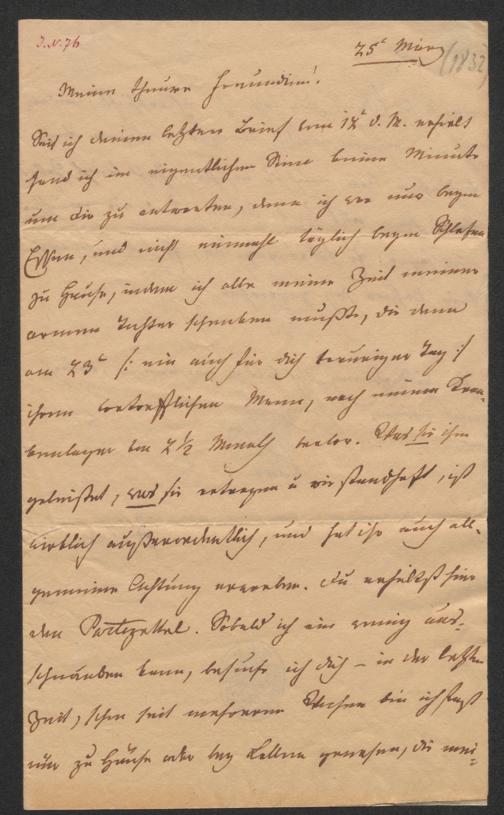 J.N. 76
25t März (1832)
Meine theure Freundinn!
Seit ich deinen letzten Brief vom 12t d. M. erhielt
fand ich im eigentlichen Sinne keine Minute
um dir zu antworten, denn ich war nur beym
Essen, und nicht einmahl täglich beym Schlafen
zu Hause, indem ich alle meine Zeit meiner
armen Tochter schenken mußte, die denn
am 23t /: ein auch für dich trauriger Tag :/
ihren vortrefflichen Mann, nach einem Kran-
kenlager von 2 1/2 Monath verlor. Was sie ihm
geleistet, was sie ertragen u wie standhaft, ist
wirklich außerordentlich, und hat ihr auch all-
gemeine Achtung erworben. Du erhältst hier
den Partezettel. Sobald ich ein wenig aus-
schnauben kann, besuche ich dich – in der letzten
Zeit, schon seit mehreren Wochen bin ich fast
nie zu Hause oder bey gewesen, die mei-